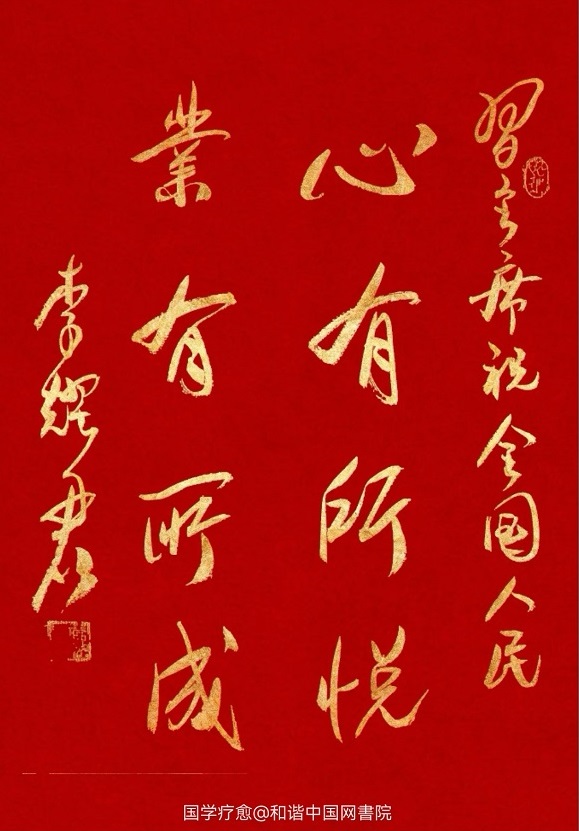 習主席祝全国人民
心有所悦
業有所成
李耀君
国学疗愈@和谐中国网書院